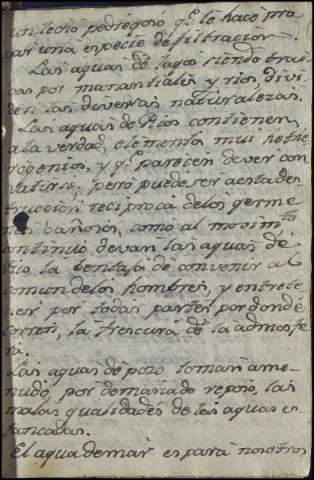 un lecho pedregoso q.e le hace pro
bar una especie de filtracion.
Las aguas de lagos siendo trai
das por manantiales y rios, divi
den las deversas naturalezas.
Las aguas de Rios contienen
a la verdad, elementos mui hethe
rogenios, y q.e parecen dever con
pero puede ser a esta des
truccion reciproca de los germe
nes dañosos, como al movim.to
continuo devan las aguas de
rio la bentaja de convenir al
comun de los hombres, y entrete
ner por todas partes por donde
corren, la frescura de la admosfe
ra.
Las aguas de pozo toman ame
nudo, por demasiado reposo, las
malas qualidades de las aguas es
tancadas.
El agua de mar es para nosotros